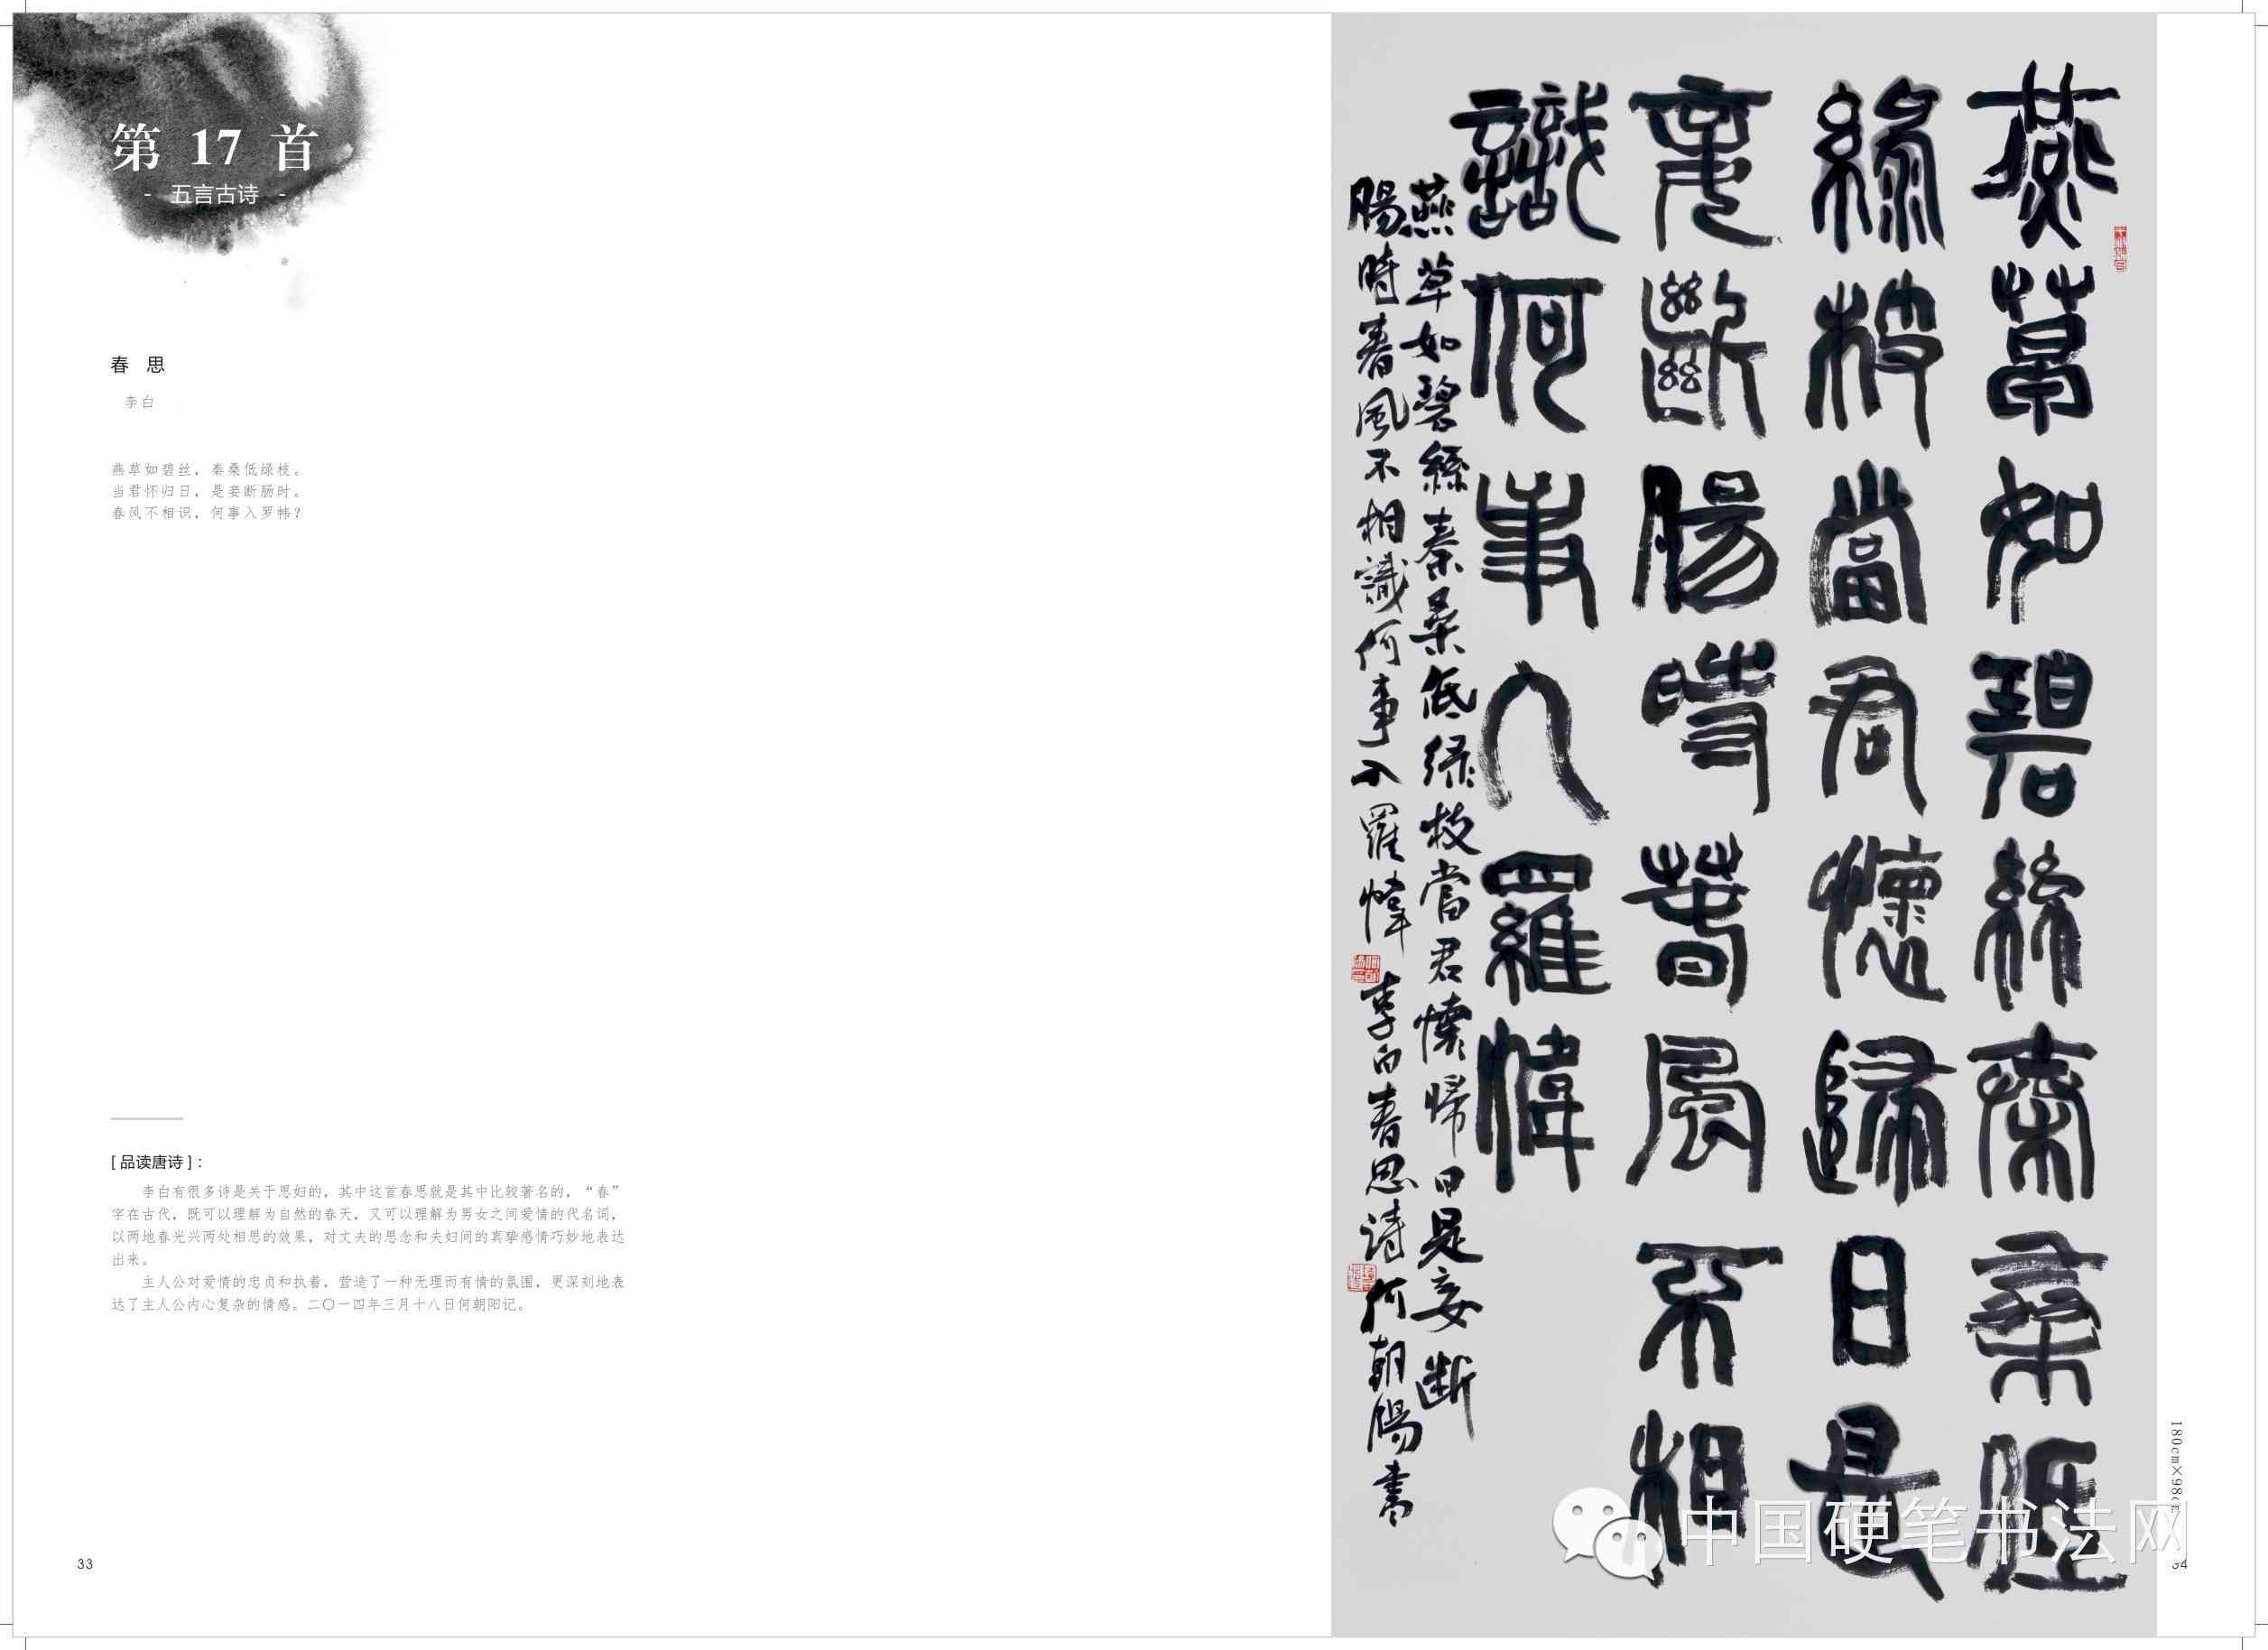 第 17 首
- 五言古诗 -
春 思
李白
燕草如碧丝，秦桑低绿枝。
当君怀归日，是妾断肠时。
春风不相识，何事入罗帏？
[ 品读唐诗 ]：
李白有很多诗是关于思妇的，其中这首春思就是其中比较著名的，“春”
字在古代，既可以理解为自然的春天，又可以理解为男女之间爱情的代名词，
以两地春光兴两处相思的效果，对丈夫的思念和夫妇间的真挚感情巧妙地表达
出来。
主人公对爱情的忠贞和执着，营造了一种无理而有情的氛围，更深刻地表
达了主人公内心复杂的情感。二〇一四年三月十八日何朝阳记。
33
燕草如碧絲秦桑低
綠枝當君懷歸日是
妾斷腸時春風不相
識何事入羅幃
燕草如碧絲秦桑低绿枝當君懷歸日是妾断
腸時春風不相識何事入羅幃 李白春思诗 何朝陽書
180cm×98c
34
中国硬笔书法网